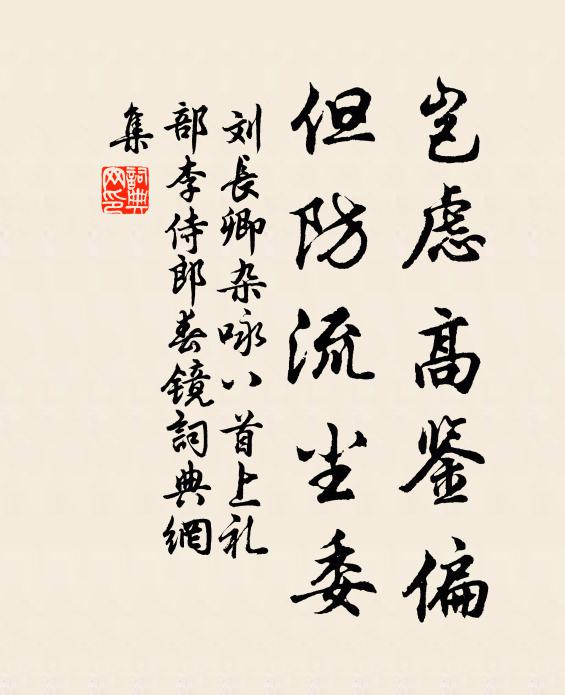 岂虑高鉴偏
但防流尘委
刘长卿杂咏八首上礼
部李侍郎春镜詞典網
集
詞典
网印